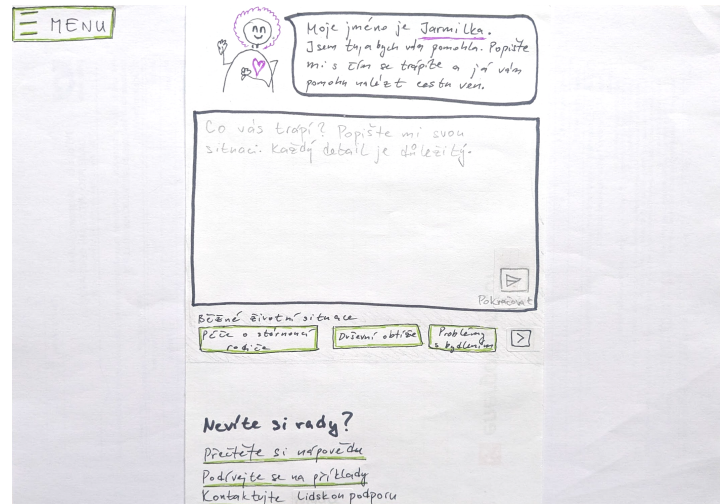 MENU
Moje jméno je Jarmilka.
Jsem tu, abych vám pomohla. Popište
mi s čím se trápíte a já vám
pomohu nalézt cestu ven.
Co vás trápí? Popište mi svou
situaci. Každý detail je důležitý.
Pokračovat
Běžné životní situace
Péče o stárnoucí
rodiče
Duševní obtíže
Problémy
s bydlením
Nevíte si rady?
Přečtěte si nápovědu
Podívejte se na příklady
Kontaktujte Lidskou podporu